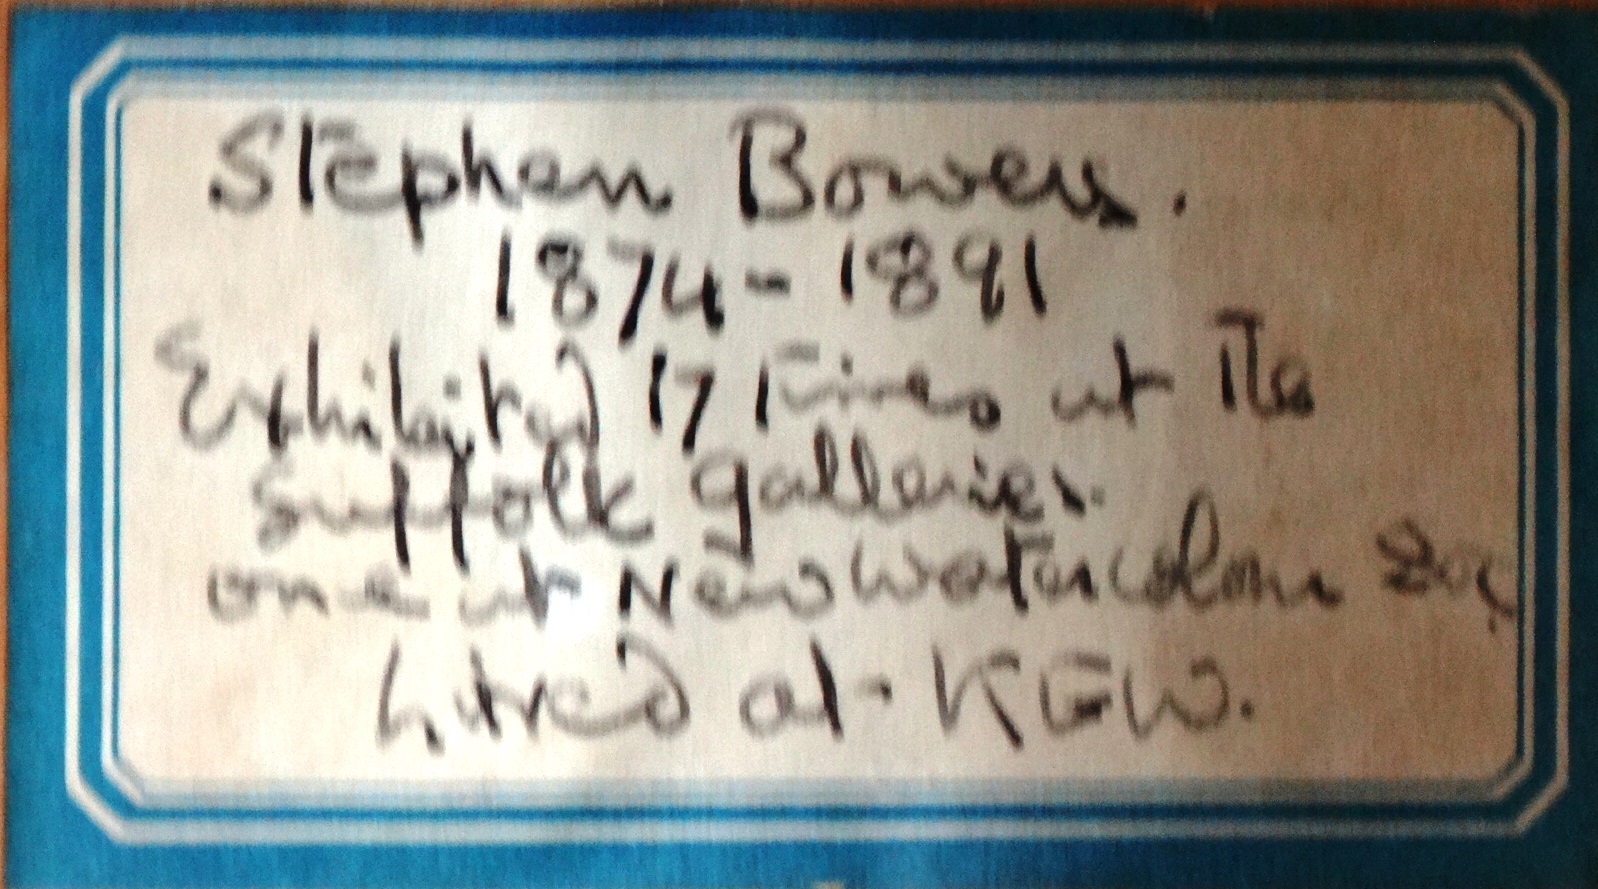 Stephen Bowers.
1874-1891
Exhibited 17 Times at The
Suffolk galleries.
one at New Watercolour Soc
Lived at KEW.